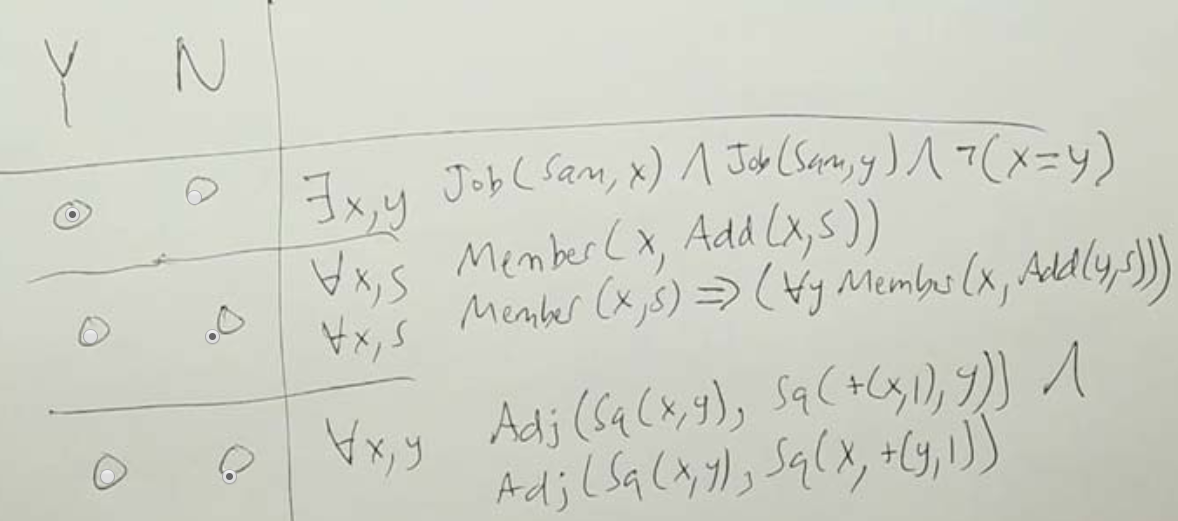 Y N
∃x,y Job(Sam, x) ∧ Job(Sam,y) ∧ ¬(x=y)
∀x,s Member(x, Add(x,s))
∀x,s Member(x,s) ⇒ (∀y Member(x, Add(y,s)))
∀x,y Adj(Sq(x,y), Sq(+(x,1), y)) ∧
Adj(Sq(x,y), Sq(x, +(y,1))